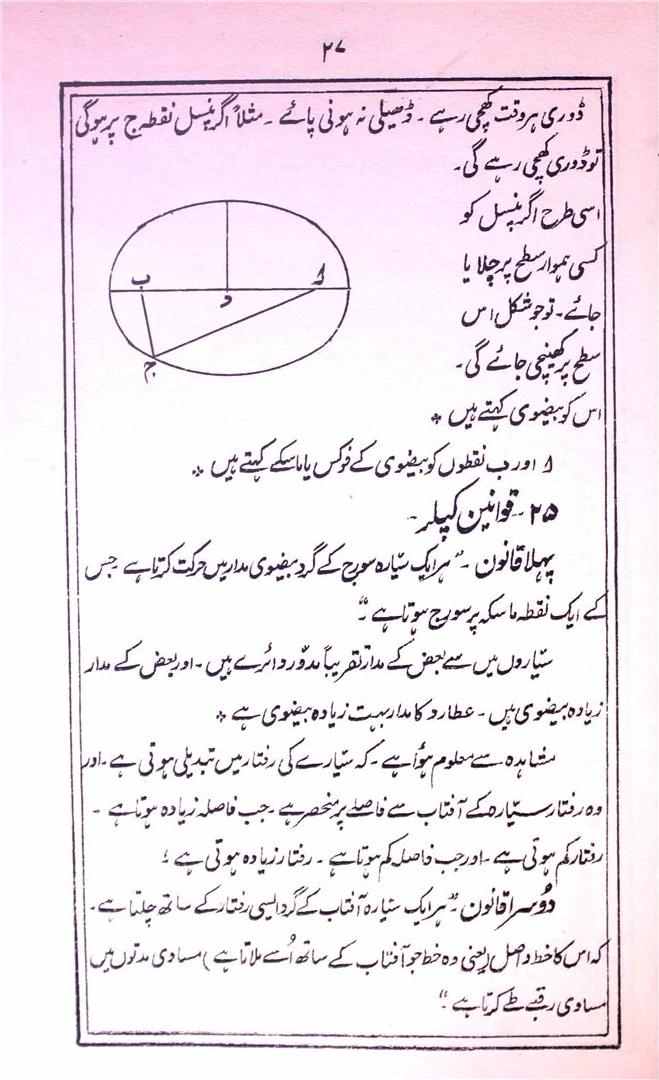 ۲۷
ڈوری ہر وقت کھچی رہے ۔ ڈھیلی نہ ہونی پائے ۔ مثلاً اگر پنسل نقطہ ج پر ہوگی
تو ڈوری کھچی رہے گی۔
اسی طرح اگر پنسل کو
کسی ہموار سطح پر چلایا
جائے۔ تو جو شکل اس
سطح پر کھینچی جائے گی۔
اس کو بیضوی کہتے ہیں *
ب
د
ا
ج
ا اور ب نقطوں کو بیضوی کے فوکس یا ماسکے کہتے ہیں *
۲۵ ۔ قوانین کپلر۔
پہلا قانون ۔ "ہر ایک سیّارہ سورج کے گرد بیضوی مدار میں حرکت کرتا ہے جس
کے ایک نقطہ ماسکہ پر سورج ہوتا ہے ۔"
سیّاروں میں سے بعض کے مدار تقریباً مدوّر دائرے ہیں ۔ اور بعض کے مدار
زیادہ بیضوی ہیں ۔ عطارد کا مدار بہت زیادہ بیضوی ہے *
مشاہدہ سے معلوم ہؤا ہے ۔ کہ سیّارے کی رفتار میں تبدیلی ہوتی ہے ۔ اور
وہ رفتار سیّارہ کے آفتاب سے فاصلے پر منحصر ہے ۔ جب فاصلہ زیادہ ہوتا ہے ۔
رفتار کم ہوتی ہے ۔ اور جب فاصلہ کم ہوتا ہے ۔ رفتار زیادہ ہوتی ہے ؛
دُوسرا قانون ۔ "ہر ایک سیّارہ آفتاب کے گرد ایسی رفتار کے ساتھ چلتا ہے ۔
کہ اس کا خط واصل (یعنی وہ خط جو آفتاب کے ساتھ اُسے ملاتا ہے) مساوی مدتوں میں
مساوی رقبے طے کرتا ہے ۔"